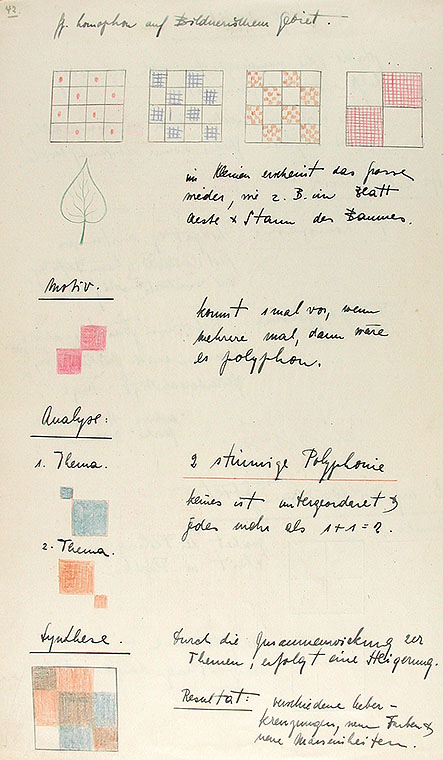 42.
ff. homophon auf Bildnerischem Gebiet.
im Kleinen erscheint das grosse
wieder, wie z. B. im Blatt
Aeste & Stamm des Baumes.
Motiv.
kommt 1 mal vor, wenn
mehrere mal, dann wäre
es polyphon.
Analyse:
1. Thema.
2 stimmige Polyphonie
keines ist untergeordnet &
jedes mehr als 1 + 1 = 2.
2. Thema.
Synthese.
Durch die Zusammenwirkung der
Themen, erfolgt eine Steigerung.
Resultat: verschiedene Ueber-
kreuzungen, neue Farben &
neue Masseinheiten.